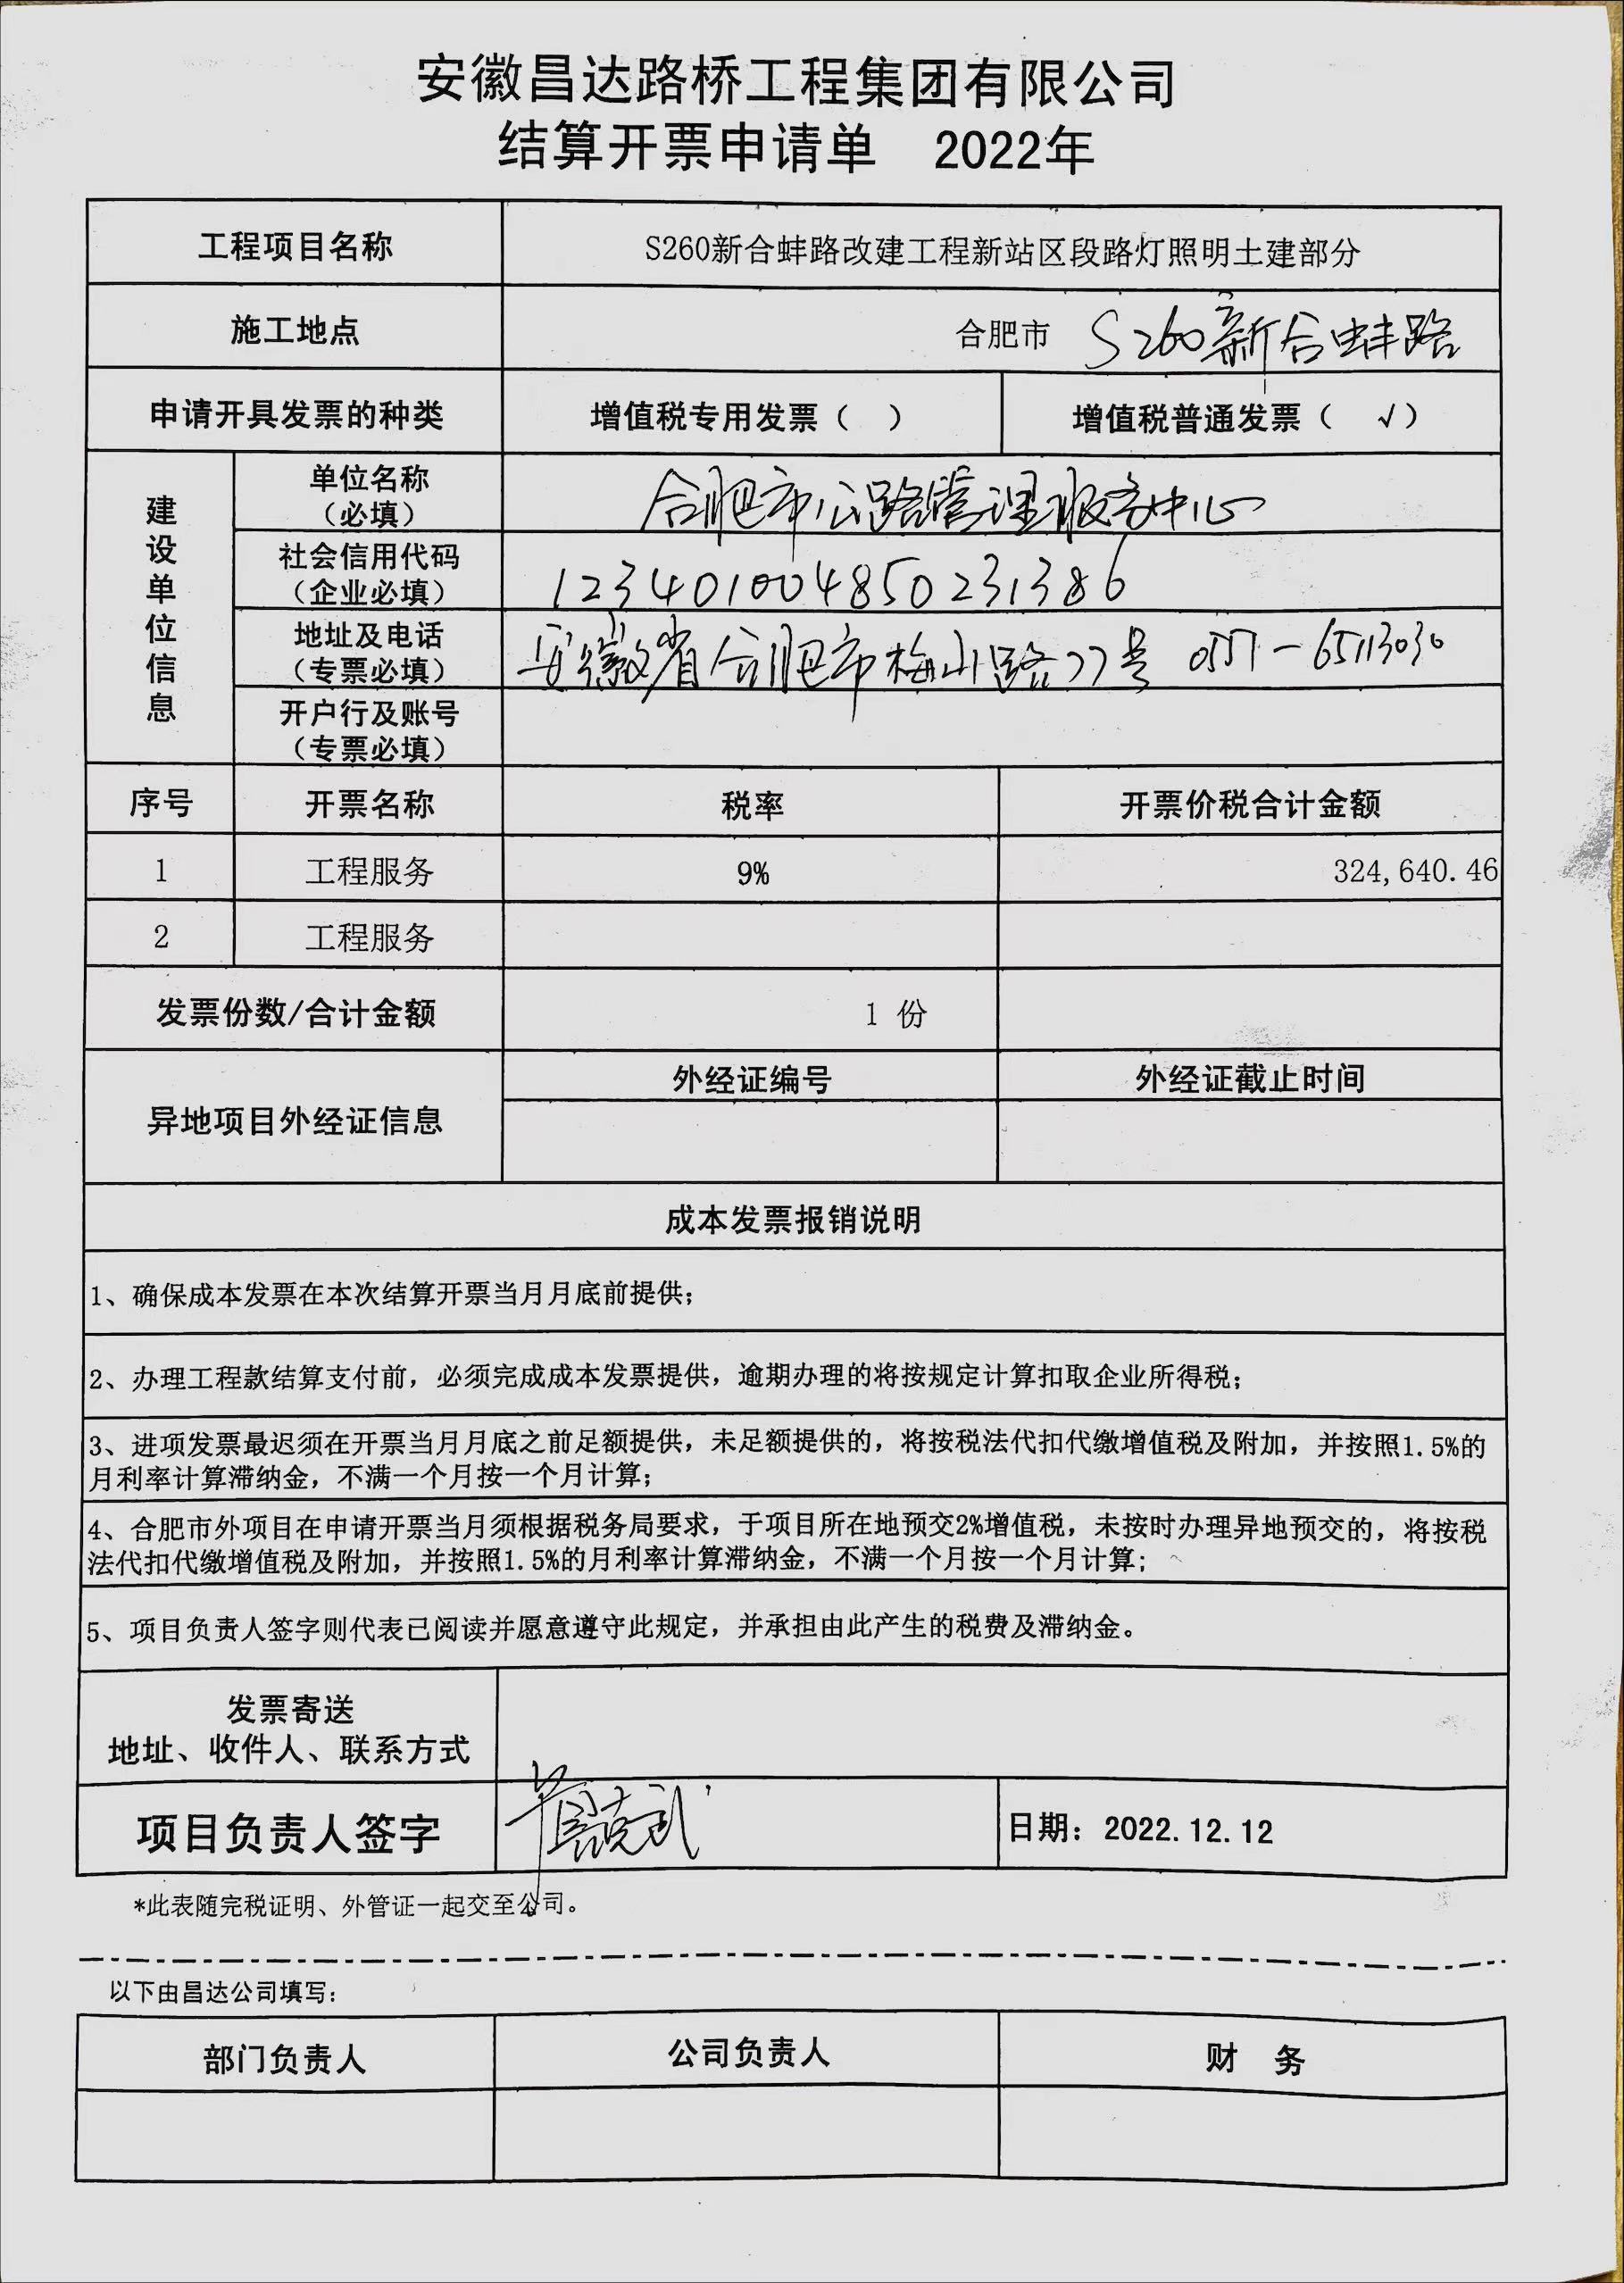 安徽昌达路桥工程集团有限公司
结算开票申请单 2022年
工程项目名称 S260新合蚌路改建工程新站区段路灯照明土建部分
施工地点 合肥市 S260新合蚌路
申请开具发票的种类 增值税专用发票（ ） 增值税普通发票（ √）
建设单位信息
单位名称
（必填） 合肥市公路管理服务中心
社会信用代码
（企业必填） 123401004850231386
地址及电话
（专票必填） 安徽省合肥市梅山路77号 0551-65113030
开户行及账号
（专票必填）
序号 开票名称 税率 开票价税合计金额
1 工程服务 9% 324,640.46
2 工程服务
发票份数/合计金额 1 份
异地项目外经证信息 外经证编号 外经证截止时间
成本发票报销说明
1、确保成本发票在本次结算开票当月月底前提供；
2、办理工程款结算支付前，必须完成成本发票提供，逾期办理的将按规定计算扣取企业所得税；
3、进项发票最迟须在开票当月月底之前足额提供，未足额提供的，将按税法代扣代缴增值税及附加，并按照1.5%的
月利率计算滞纳金，不满一个月按一个月计算；
4、合肥市外项目在申请开票当月须根据税务局要求，于项目所在地预交2%增值税，未按时办理异地预交的，将按税
法代扣代缴增值税及附加，并按照1.5%的月利率计算滞纳金，不满一个月按一个月计算；
5、项目负责人签字则代表已阅读并愿意遵守此规定，并承担由此产生的税费及滞纳金。
发票寄送
地址、收件人、联系方式
项目负责人签字 日期：2022.12.12
*此表随完税证明、外管证一起交至公司。
以下由昌达公司填写：
部门负责人 公司负责人 财 务